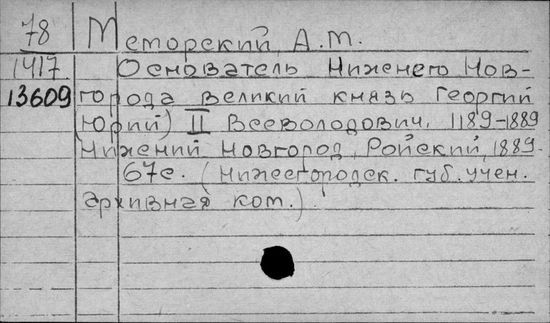 78 Меморский, А.М.
1417. Основатель Нижнего Нов-
13609 города великий князь Георгий
(Юрий) II Всеволодович. 1189-1889
Нижний Новгород, Ройский, 1889.
67с. (Нижегородск. губ. учен.
архивная ком.).